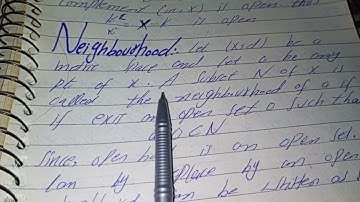 complement (in x) is open thus
k^c x x is open
Neighbourhood:- Let (x,d) be a
metric place and let a be any
pt of x. A subset N of x is
called the neighbourhood of a if
if exist an open set o such tha
a O C N
Since, open ball is an open set.
Can by place by an open
can be written as